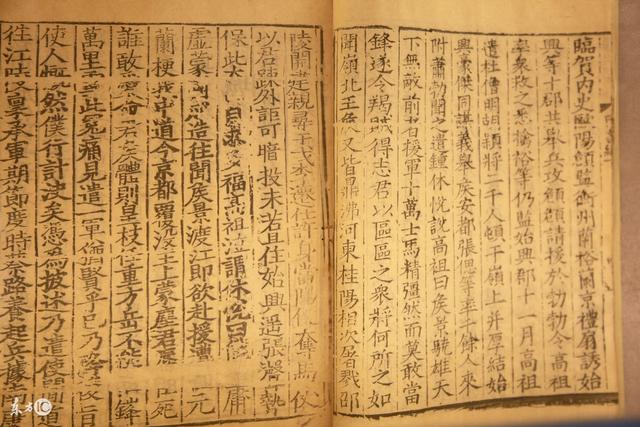 臨賀内史歐陽頠監衡州蘭裕蘭京禮扇誘始
興等十郡共舉兵攻頠頠請援於勃勃令高祖
率衆救之悉擒裕等仍監始興郡十一月高祖
遣杜僧明胡穎將二千人頓于嶺上并厚結始
興豪傑同謀義舉侯安都張偲等率千餘人來
附蕭勃聞之遣鍾休悅說高祖曰侯景驍雄天
下無敵前者援軍十萬士馬精彊然而莫敢當
鋒遂令羯賊得志君以區區之衆將何所之如
聞嶺北王侯又皆鼎沸河東桂陽相次屠戮邵
陵開建親尋干戈李遷仕許身當陽便奪馬仗
以君疎外詎可暗投未若且住始興遥張聲勢
保此太山自求多福高祖泣謂休悅曰庸
虛蒙國造往聞侯景渡江即欲赴援遭元
蘭梗我中道今京都覆沒主上蒙塵君辱死
誰敢愛命君侯體則皇枝任重方岳不能鋒
萬里雪此冤痛見遣一軍猶賢乎已乃降後旨
使人慨然僕行計決矣憑為披述乃遣使間道
往江陵稟承軍期節度時蔡路養起兵據南